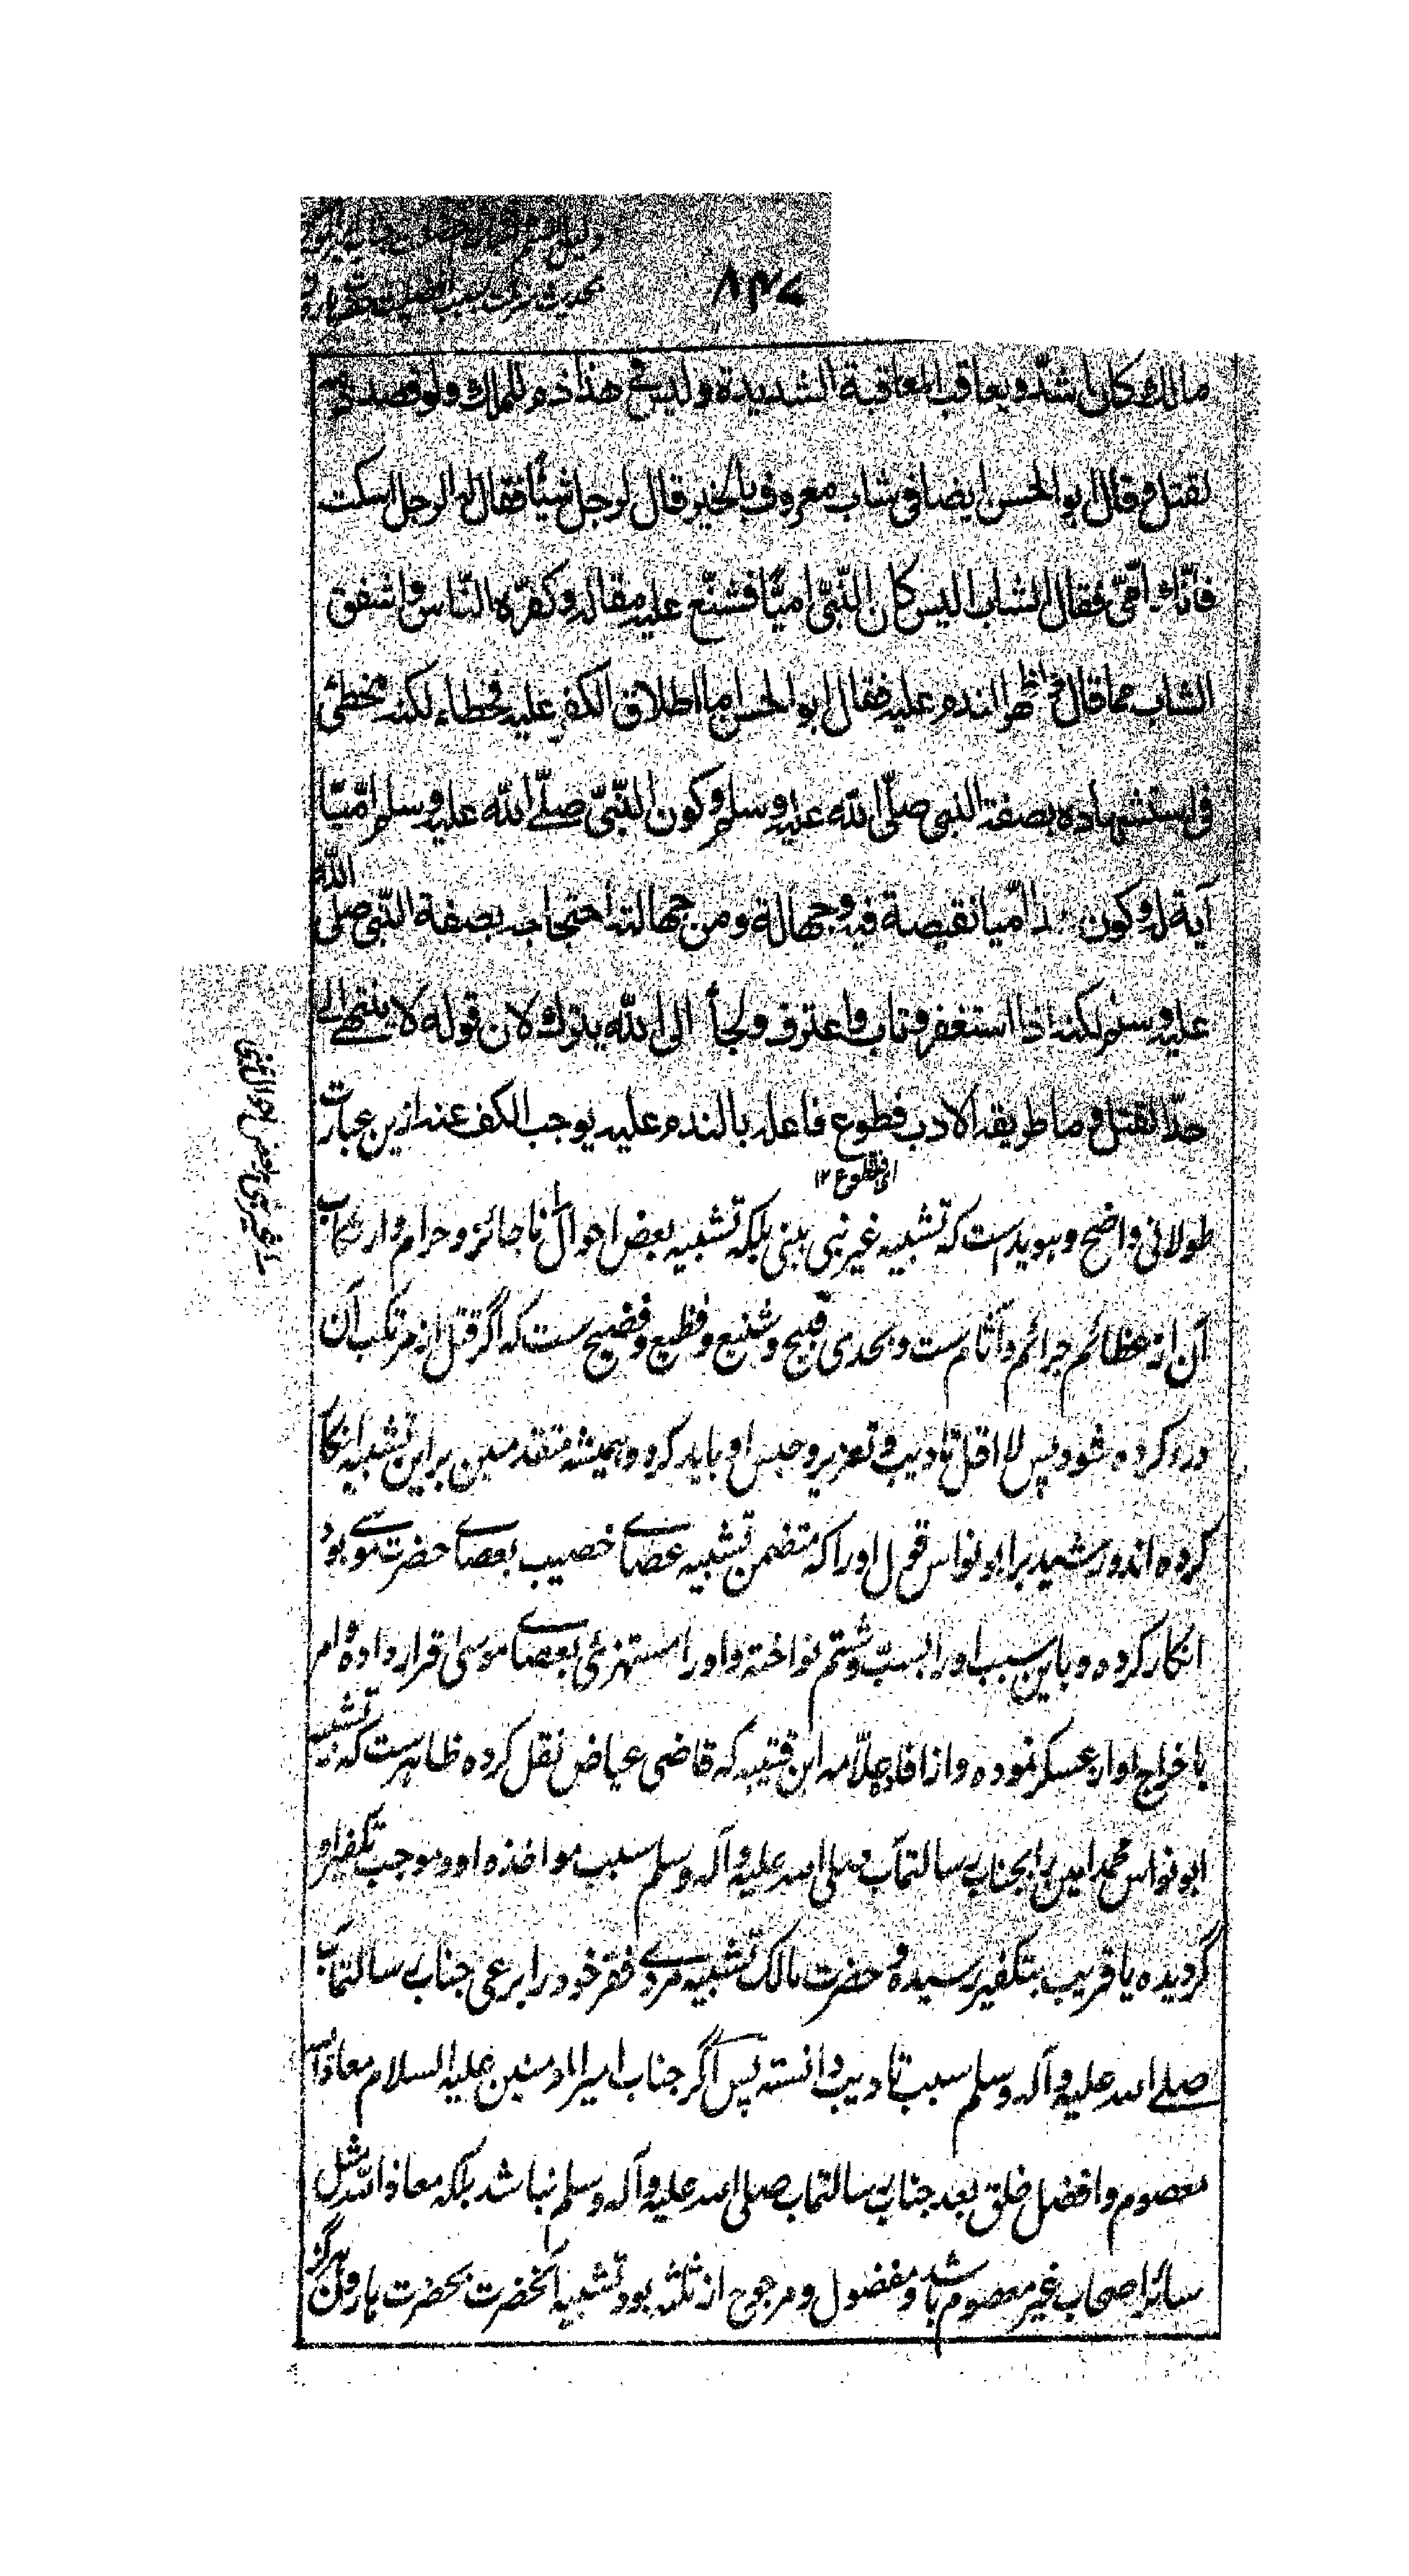 ۸۳۷
مالك كان اشدّ و يعاقب المعاقبة الشديدة و ليس فى هذا ذم للملك و لو قصد ذمه
لقتل و قال ابو الحسن ايضا فى شاب معروف بالخير قال لرجل شيئًا فقال له الرجل اسكت
فانّك امّىّ فقال الشاب اليس كان النّبىّ اميًّا فشنّع عليه مقاله و كفّره النّاس و اشفق
الشاب مما قال و اظهر الندم عليه فقال ابو الحسن اما اطلاق الكفر عليه فخطاء لكنه مخطئ
فى استشهاده بصفة النبى صلّى الله عليه و سلم و كون النّبىّ صلّى الله عليه و سلم امّيًّا
آية له و كون هذا امّيا نقيصة فيه و جهالة و من جهالته احتجاجه بصفة النّبى صلى الله
عليه و سلم لكنه اذا استغفر و تاب و اعترف و لجأ الى الله يترك لان قوله لا ينتهى الى
حدّ القتل و ما طريقه الادب فطوع فاعله بالندم عليه يوجب الكف عنه ازين عبارت
اى فطوع ۱۲
طولانى واضح و هويداست كه تشبيه غير نبى بنبى بلكه تشبيه بعض احوال ناجائز و حرام و ارتكاب
آن از عظائم جرائم و آثام ست و بحدى قبيح و شنيع و فظيع و فضيح ست كه اگر قتل از مرتكب آن
درء كرده شود پس لا اقل تاديب و تعزير و حبس او بايد كرد و هميشه متقدمين بر اين تشبيه انكار
كرده اند و رشيد بر ابو نواس قول او را كه متضمن تشبيه عصاے خصيب بعصاے حضرت موسے بود
انكار كرده و باين سبب او را بسبّ و شتم نواخته و او را مستهزئ بعصاے موسى قرار داده و امر
باخراج او از عسكر نموده و از افاده علّامه ابن قتيبه كه قاضى عياض نقل كرده ظاهرست كه تشبيه
ابو نواس محمد امين را بجناب رسالتمآب صلى الله عليه و آله و سلم سبب مواخذه او و موجب تكفير او
گرديده يا قريب بتكفير رسيده و حضرت مالك تشبيه مردے فقر خود را برعى جناب رسالتمآب
صلے الله عليه و آله و سلم سبب تاديب دانسته پس اگر جناب امير المؤمنين عليه السلام معاذ الله
معصوم و افضل خلق بعد جناب رسالتمآب صلى الله عليه و آله و سلم نباشد بلكه معاذ الله مثل
سائر اصحاب غير معصوم باشد و مفضول و مرجوح از ثلثه بود تشبيه آنحضرت بحضرت هارون هرگز